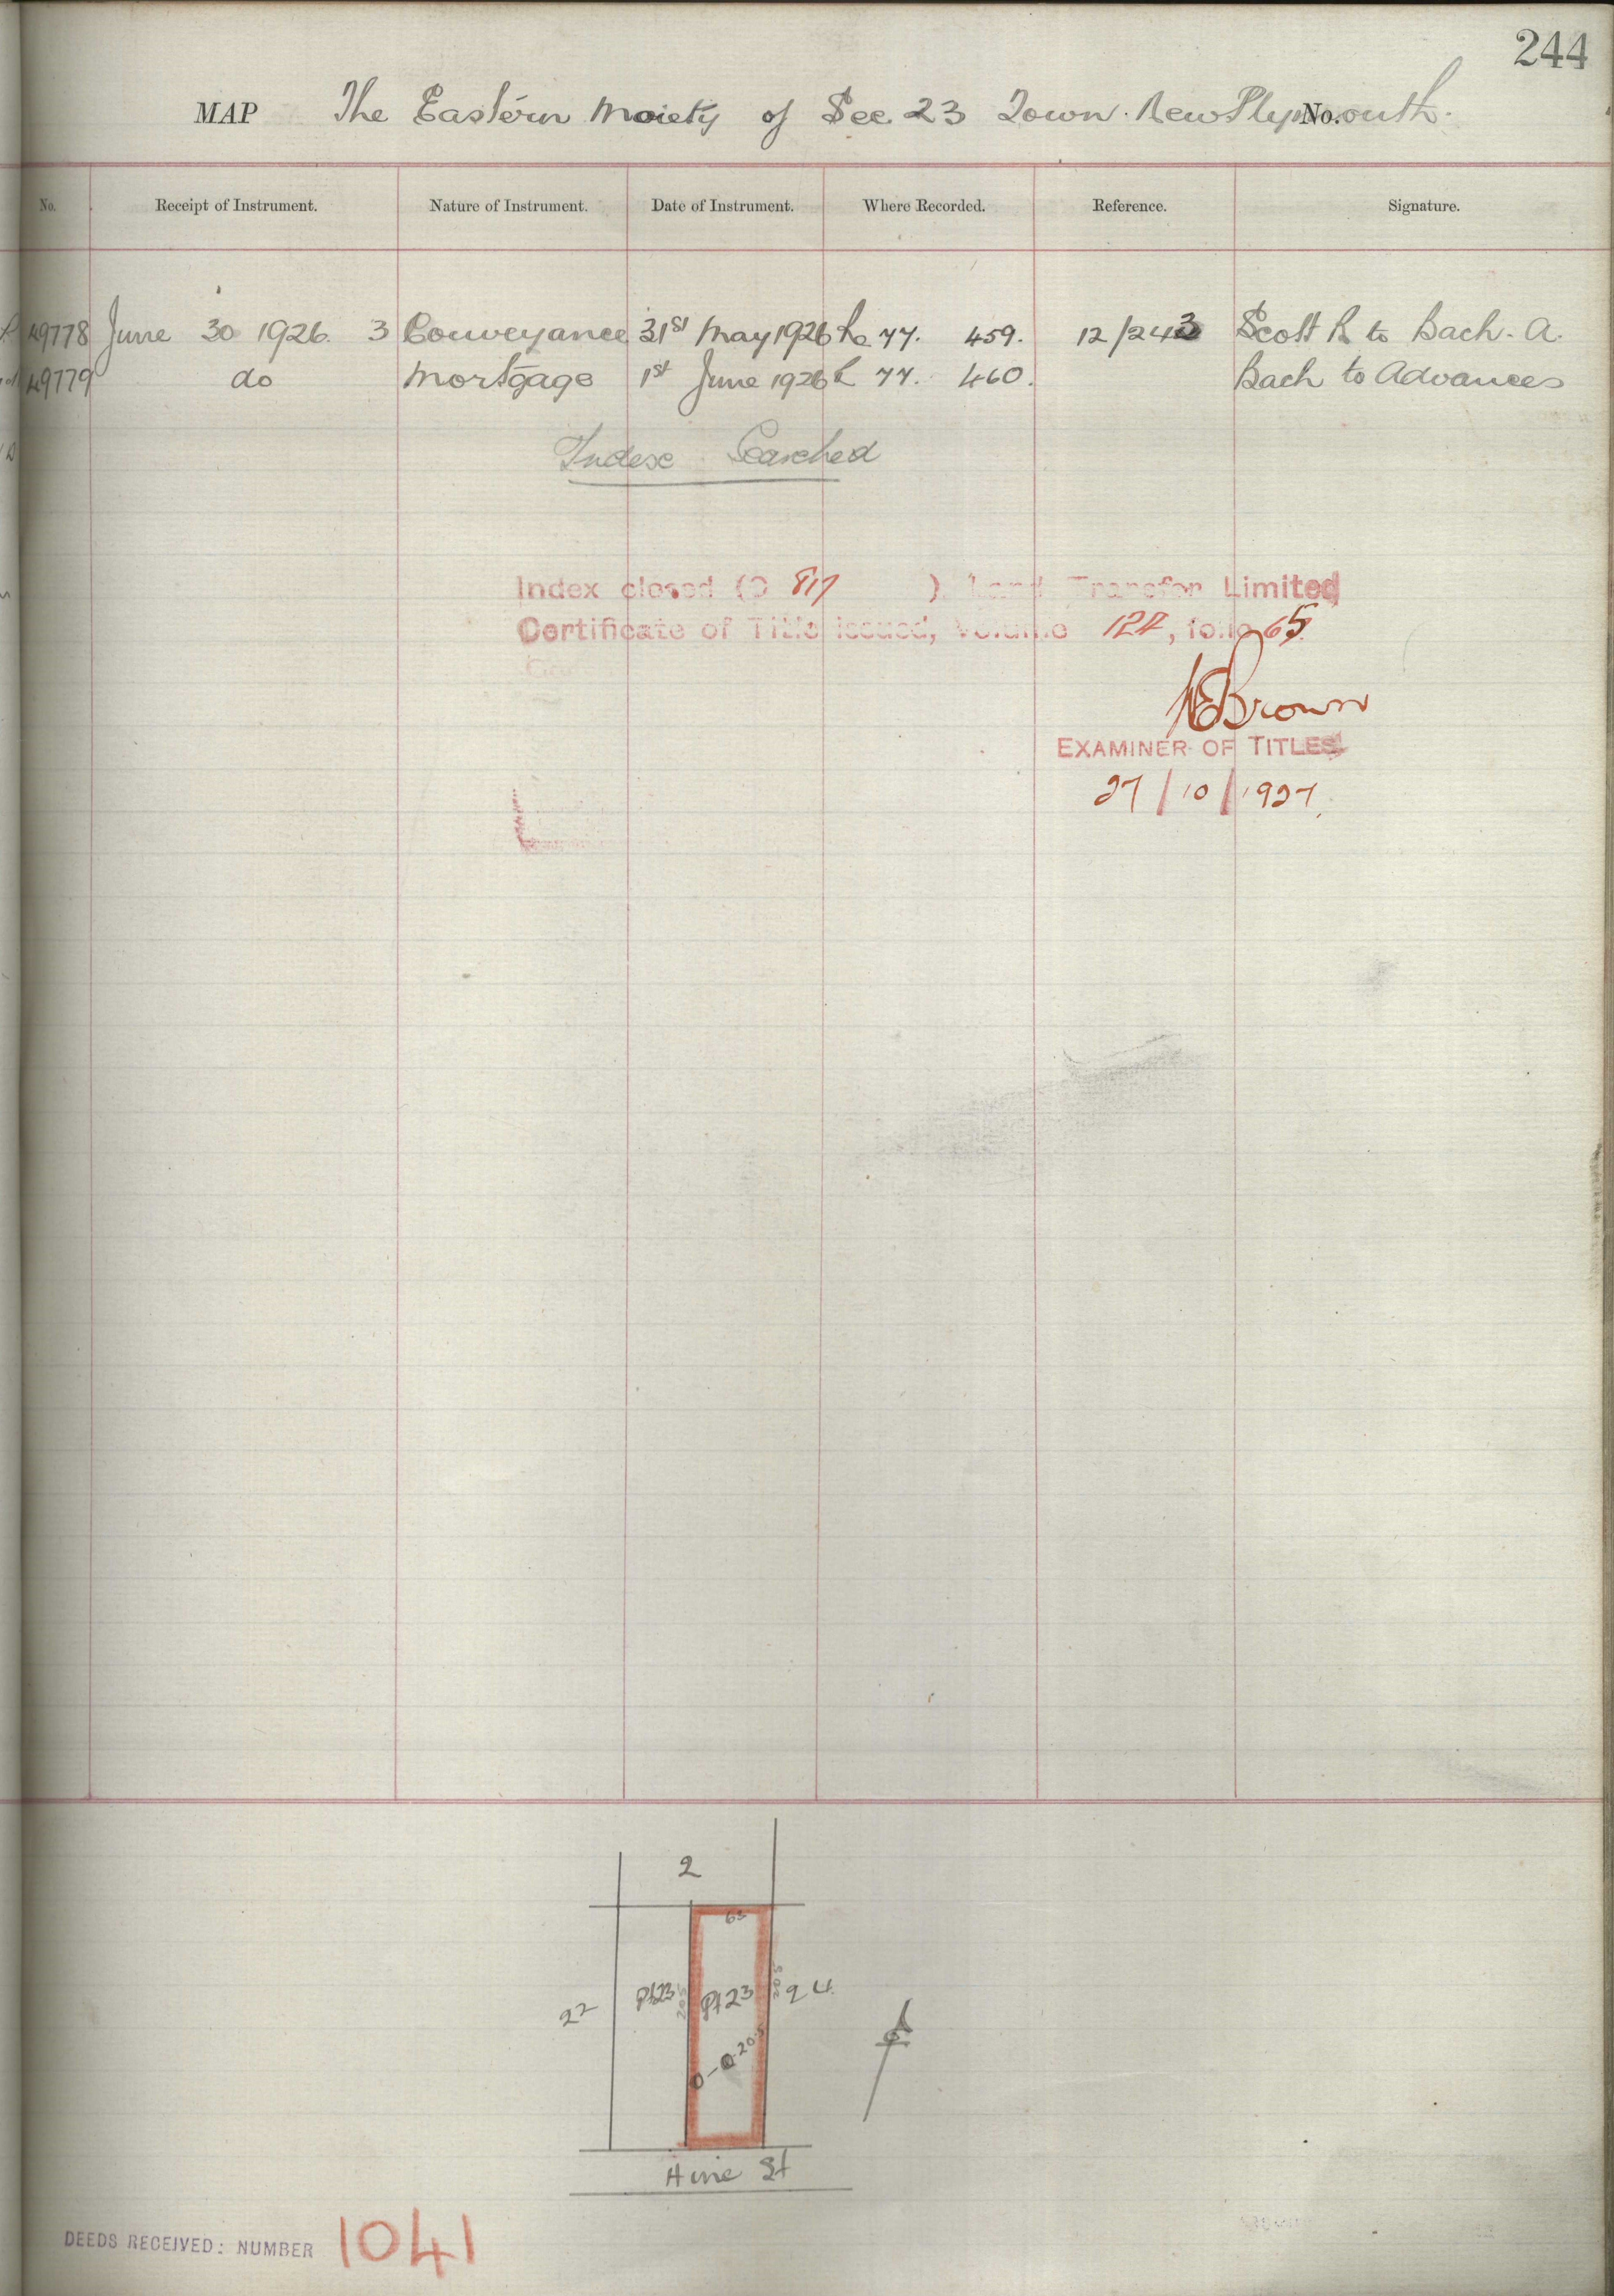 244
MAP The Eastern Moiety of Sec. 23 Town. New Plymouth. No.
No. Receipt of Instrument. Nature of Instrument. Date of Instrument. Where Recorded. Reference. Signature.
49778 June 30 1926. 3 Conveyance 31st May 1926 77. 459. 12/243 Scott R to Bach. A.
49779 do Mortgage 1st June 1926 77. 460. Bach to Advances
Index Searched
Index closed (D 817 ). Land Transfer Limited
Certificate of Title issued, Volume 122, folio 65.
Brown
EXAMINER OF TITLES
27/10/1927.
2
63
Pt23 205 Pt23 205 24
22
0-0-20.5
Hine St
DEEDS RECEIVED: NUMBER 1041